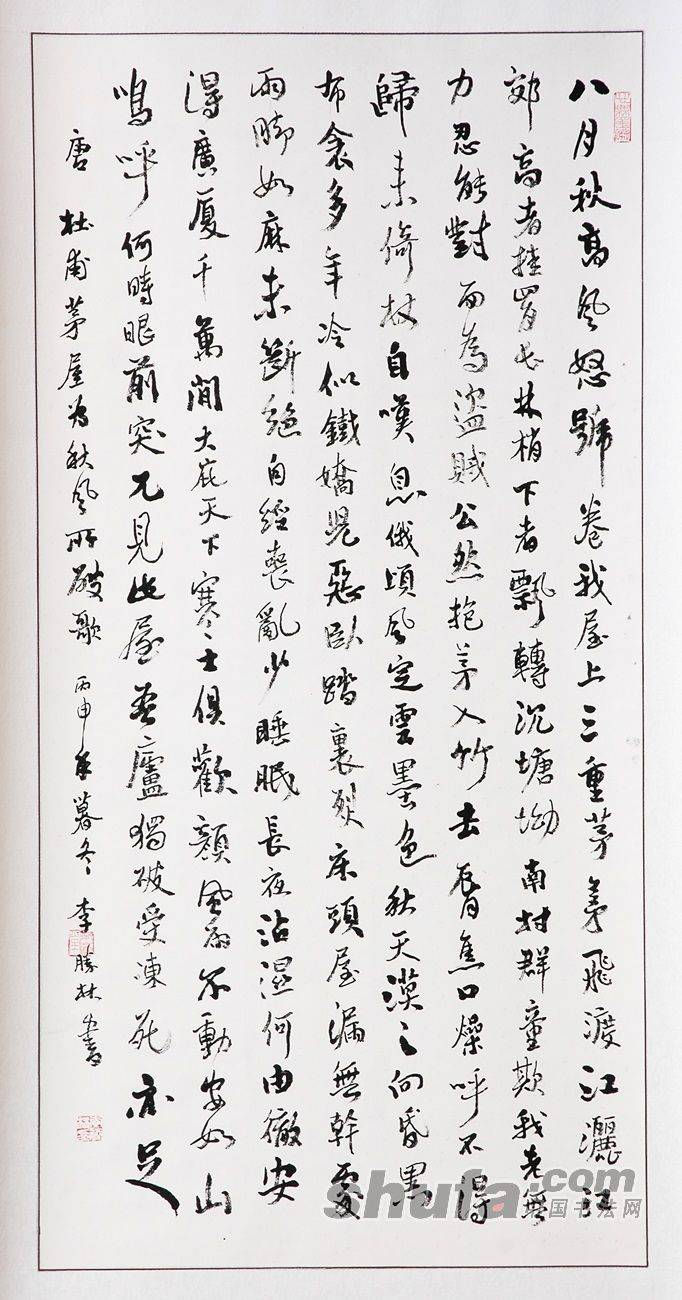 八月秋高風怒號卷我屋上三重茅茅飛渡江灑江
郊高者挂罥長林梢下者飄轉沉塘坳南村群童欺我老無
力忍能對面為盜賊公然抱茅入竹去唇焦口燥呼不得
歸来倚杖自嘆息俄頃風定雲墨色秋天漠々向昏黑
布衾多年冷似鐵嬌児惡臥踏裏裂床頭屋漏無幹處
雨脚如麻未斷絕自經喪亂少睡眠長夜沾濕何由徹安
得廣厦千萬間大庇天下寒士俱歡顏風雨不動安如山
嗚呼何時眼前突兀見此屋吾廬獨破受凍死亦足
唐杜甫茅屋為秋風所破歌丙申年暮冬李勝林書
shufa.com
国书法网